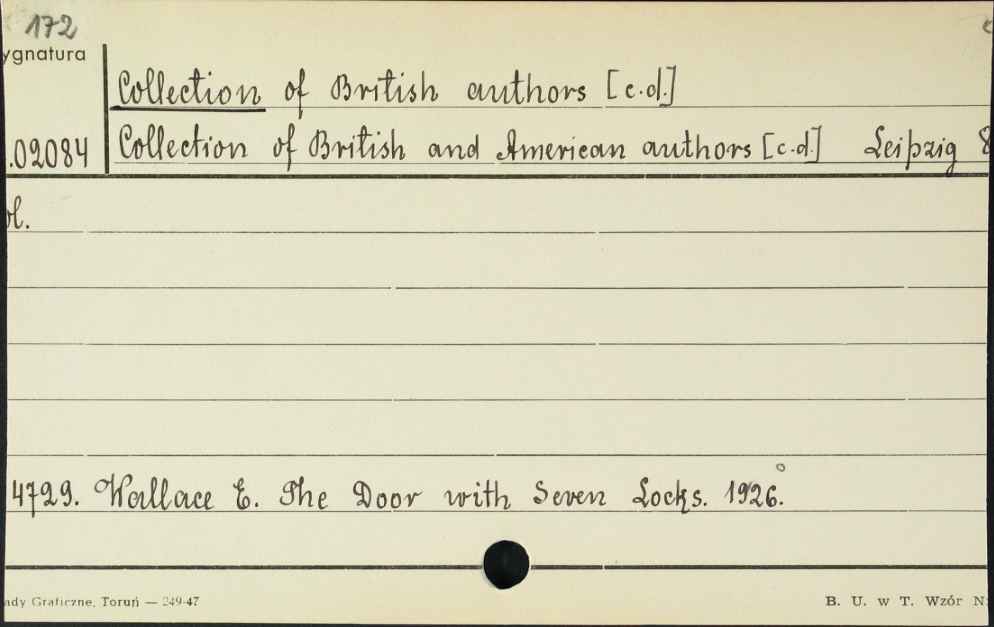 172
ygnatura
Collection of British authors [c.d.]
.02084 Collection of British and American authors [c.d.] Leipzig 8
ol.
4729. Wallace E. The Door with Seven Locks. 1926.
ady Graficzne, Toruń — 249-47 B. U. w T. Wzór N